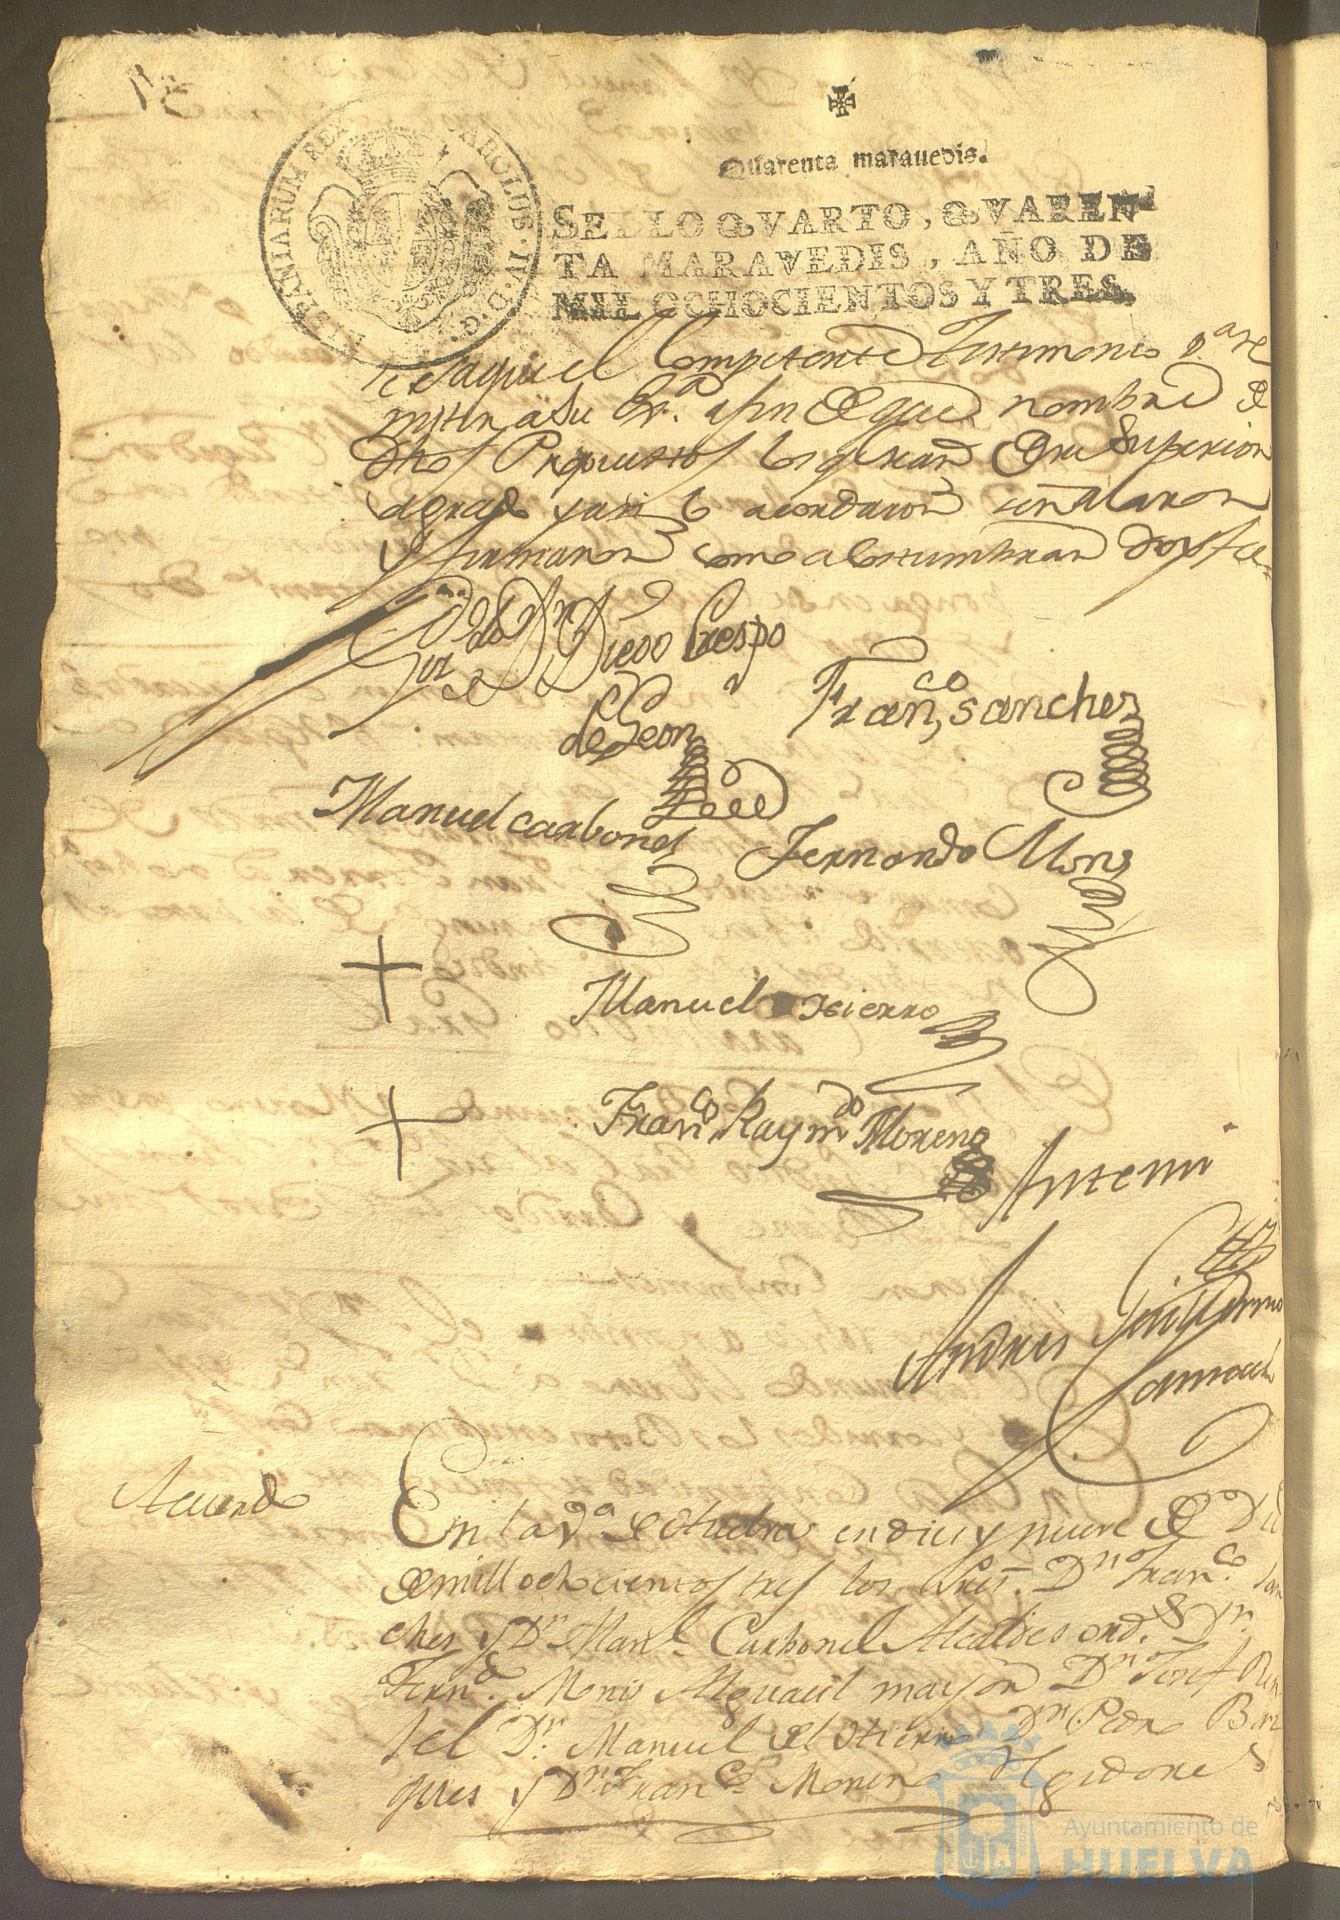 Quarenta maravedis.
SELLO QVARTO, QVAREN
TA MARAVEDIS, AÑO DE
MIL OCHOCIENTOS Y TRES.
HISPANIARUM REX CAROLUS IV D G
Competente Testimonio p.ª re
mitir a su afin de que nombre de
dhos Propuestos los q. sean de su superior
agrado y asi lo acordaron señalaron
y firmaron como acostumbran doy fee
D.n Diego Crespo
de Leon
Fran.co Sanchez
Manuel Carbonel
Fernando Monis
Manuel Hierro
Fran.co Raym.do Moreno
Antemi
Andres Guillermo
Camacho
Acuerdo
En la v.ª de Huelva en diez y nueve de
de mill ochocientos tres los Sres. D.n Fran.co San
chez y D.n Man.l Carbonel Alcaldes ord.s D.n
Fern.do Monis Alguacil mayor D.n Josef
tel D.n Manuel del Hierro D.n Pedro
ques y D.n Fran.co Moreno Regidores
Ayuntamiento de
HUELVA